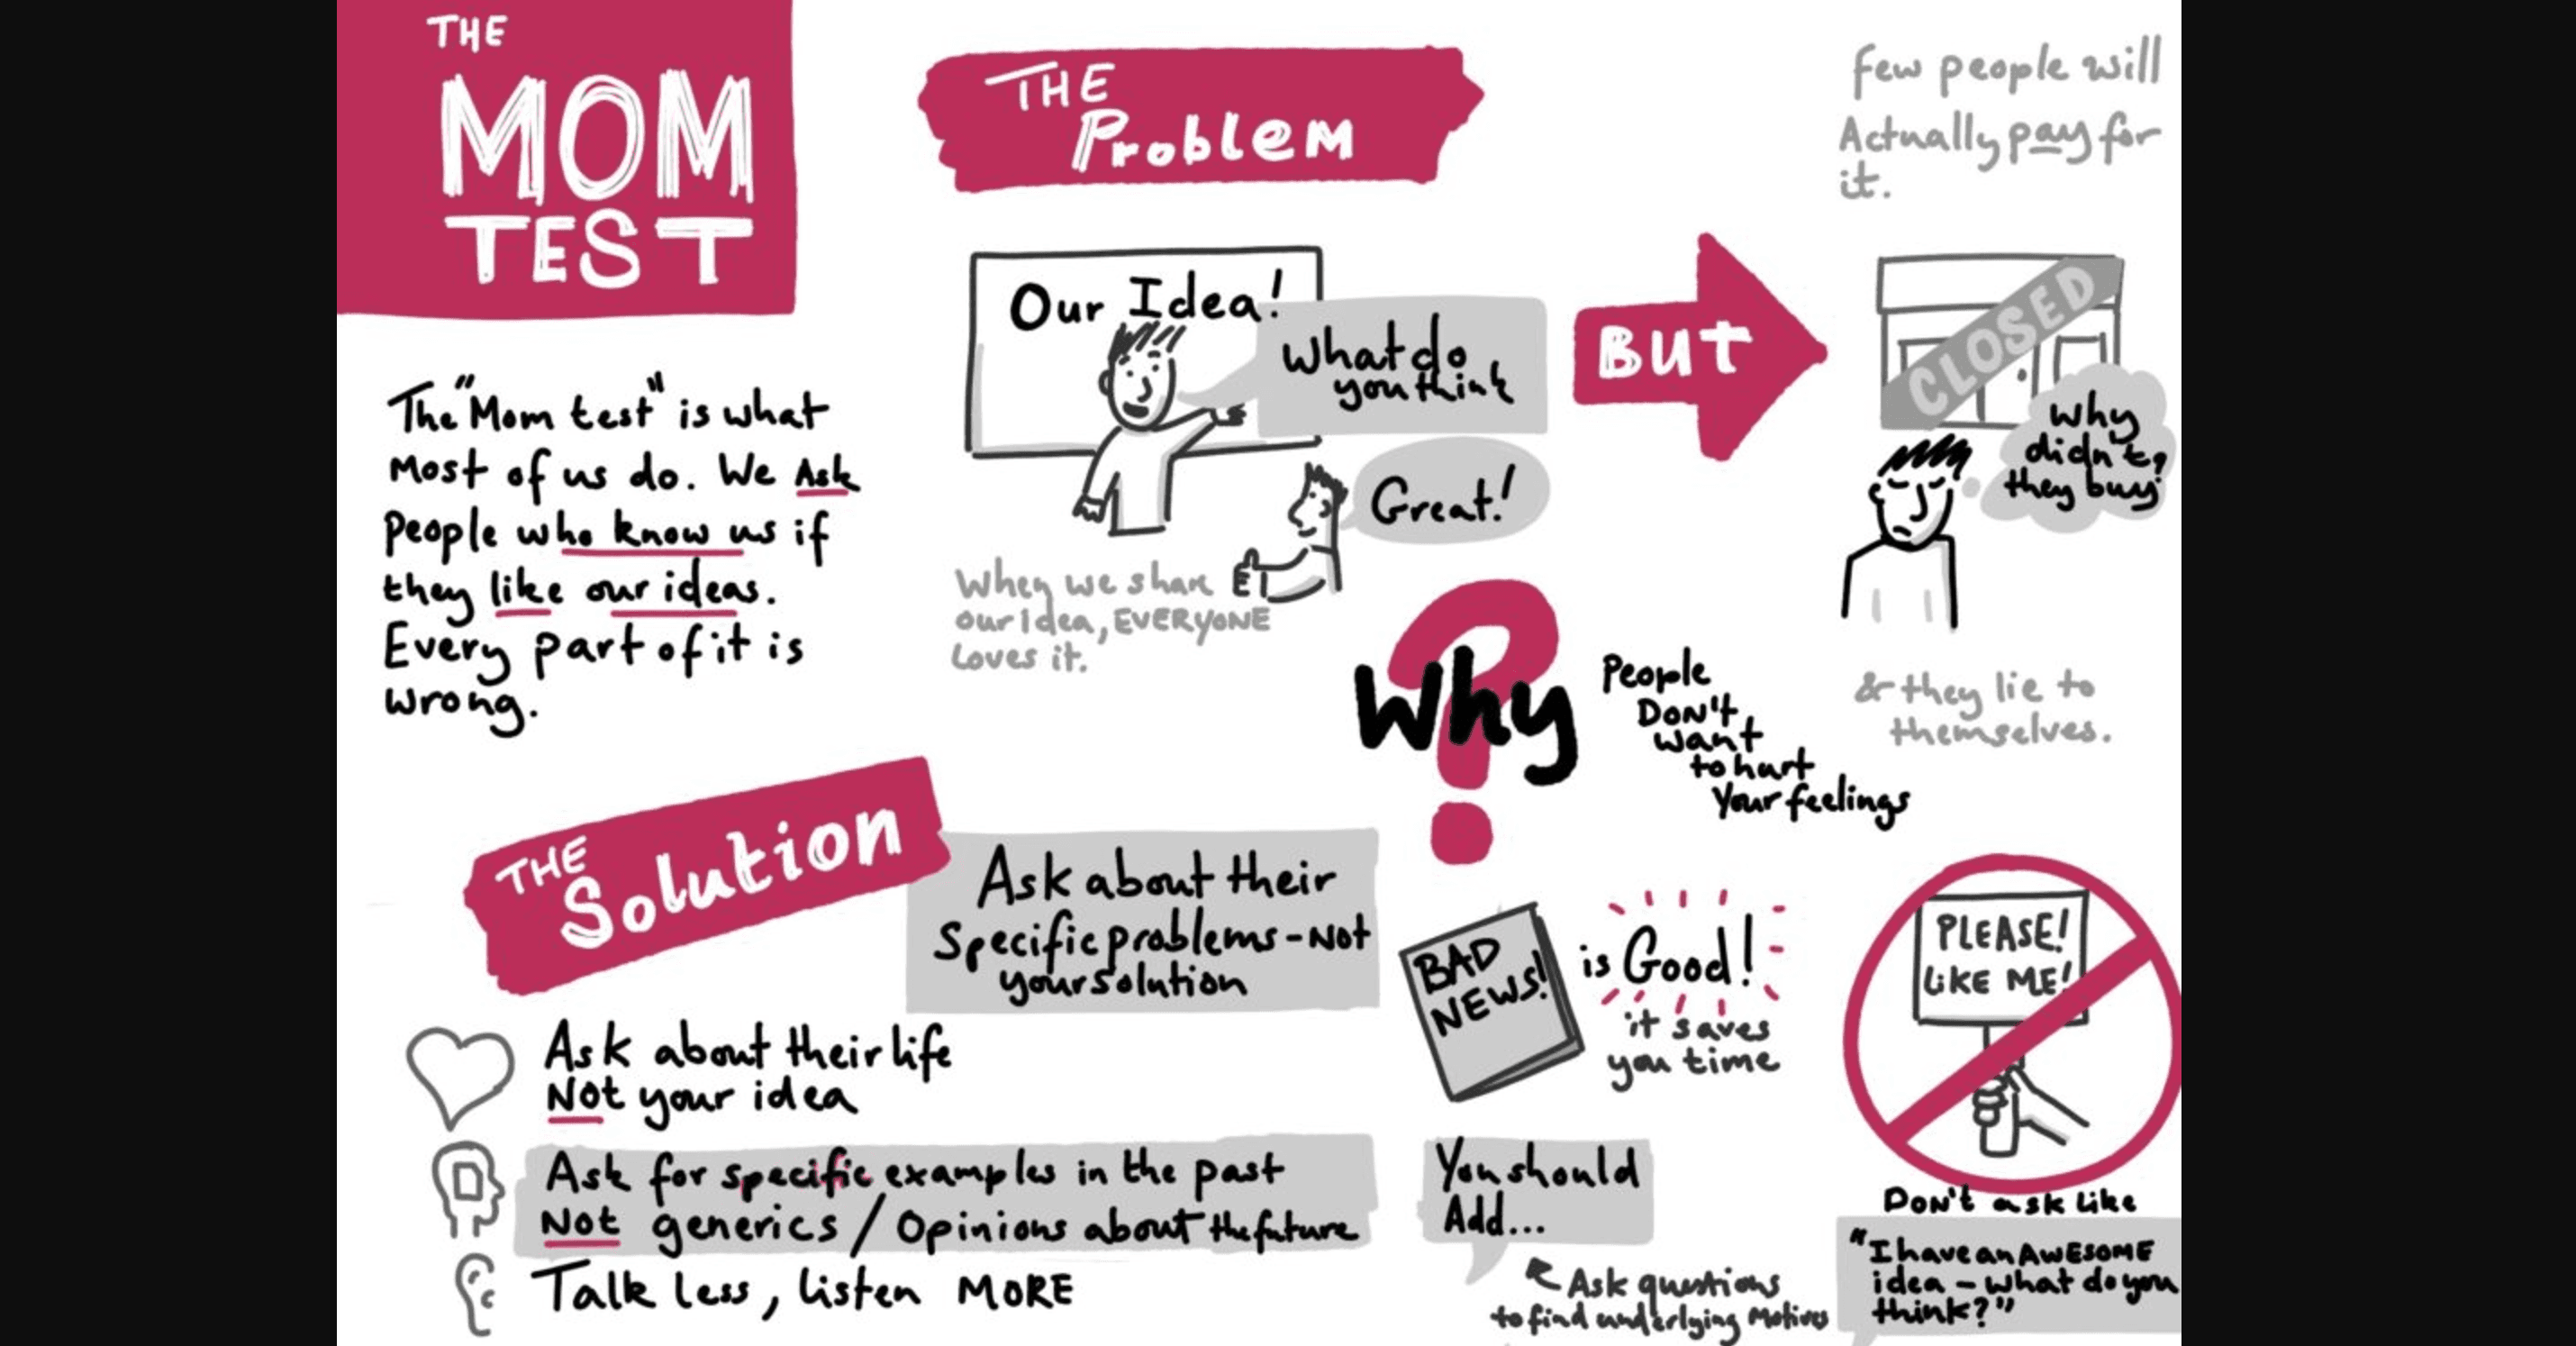 THE
MOM
TEST
The "Mom test" is what
Most of us do. We Ask
People who know us if
they like our ideas.
Every part of it is
wrong.
THE
Problem
Our Idea!
What do
you think
Great!
When we share
our idea, EVERYONE
Loves it.
BUT
few people will
Actually pay for
it.
CLOSED
Why
didn't?
they buy
Why
?
People
DON'T
want
to hurt
Your feelings
& they lie to
themselves.
THE
Solution
Ask about their
Specific problems - Not
your solution
Ask about their life
Not your idea
Ask for specific examples in the past
Not generics / Opinions about the future
Talk less, listen MORE
BAD
NEWS!
is Good!
it saves
you time
You should
Add...
Ask questions
to find underlying Motives
PLEASE!
LIKE ME!
DON'T ask like
"I have an AWESOME
idea - what do you
think?"